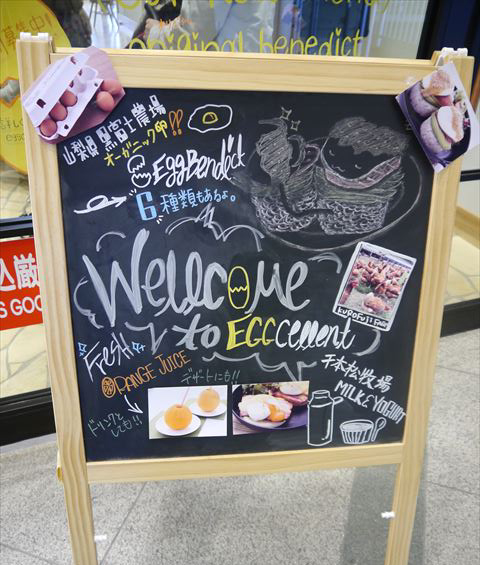 original benedict
山梨県黒富士農場
オーガニック卵!!
EggBendict
6種類もあるよ。
Wellcome
to EGGcellent
KUROFUJI FARM
Fresh
ORANGE JUICE
デザートにも!!
ドリンクとしても!!
千本松牧場
MILK & YOGURT